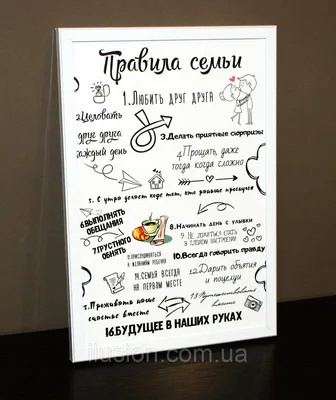 Правила семьи
1.Любить друг друга
2.Целовать
друг друга
каждый день
3.Делать приятные сюрпризы
4.Прощать, даже
тогда когда сложно
5. С утра делает кофе тот, кто раньше проснулся
6.ВЫПОЛНЯТЬ
ОБЕЩАНИЯ
7.ГРУСТНОГО
ОБНЯТЬ
8.НАЧИНАТЬ ДЕНЬ С УЛЫБКИ
9.НЕ ЛОЖИТЬСЯ СПАТЬ
В ПЛОХОМ НАСТРОЕНИИ
10.Всегда говорить правду
11.ПРИСЛУШИВАТЬСЯ
К ЖЕЛАНИЯМ РЕБЕНКА
12.Дарить объятия
и поцелуи
14.СЕМЬЯ ВСЕГДА
НА ПЕРВОМ МЕСТЕ
13.Путешествовать
вместе
15.Проживать наше
счастье вместе
16.БУДУЩЕЕ В НАШИХ РУКАХ
ilusion.com.ua